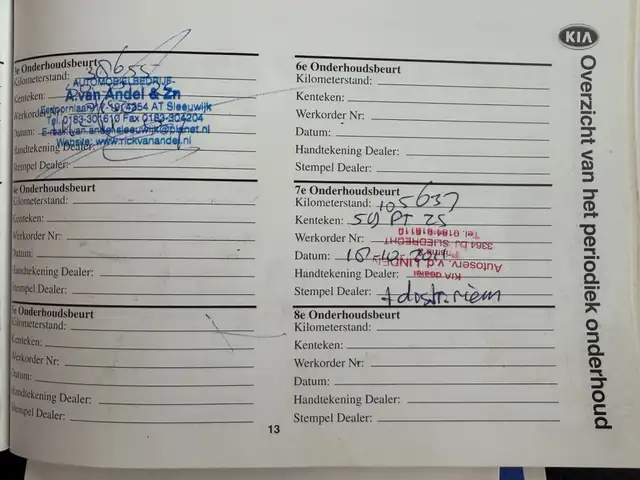 KIA
Overzicht van het periodiek onderhoud
3e Onderhoudsbeurt
Kilometerstand:
Kenteken:
Werkorder Nr:
Datum:
Handtekening Dealer:
Stempel Dealer:
AUTOMOBIELBEDRIJF
A. van Andel & Zn
4254 AT Sleeuwijk
Tel. 0183-301610 Fax 0183-304204
E-mail: van.andelsleeuwijk@planet.nl
Website: www.rickvanandel.nl
4e Onderhoudsbeurt
Kilometerstand:
Kenteken:
Werkorder Nr:
Datum:
Handtekening Dealer:
Stempel Dealer:
5e Onderhoudsbeurt
Kilometerstand:
Kenteken:
Werkorder Nr:
Datum:
Handtekening Dealer:
Stempel Dealer:
6e Onderhoudsbeurt
Kilometerstand:
Kenteken:
Werkorder Nr:
Datum:
Handtekening Dealer:
Stempel Dealer:
7e Onderhoudsbeurt
Kilometerstand: 105637
Kenteken: 59 PT ZS
Werkorder Nr:
Datum:
Handtekening Dealer:
Stempel Dealer: + dostr.riem
KIA dealer
Autoserv. v.d. LINDEN
3364 SLIEDRECHT
Tel. 0184
8e Onderhoudsbeurt
Kilometerstand:
Kenteken:
Werkorder Nr:
Datum:
Handtekening Dealer:
Stempel Dealer:
13